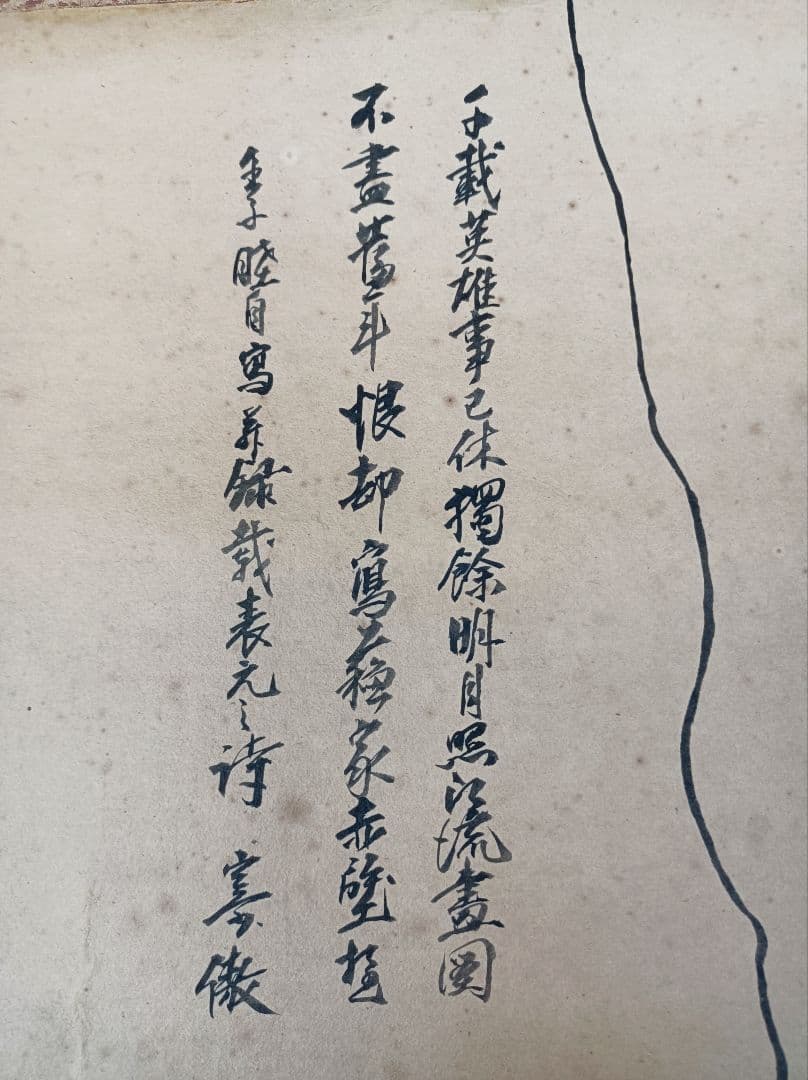 千載英雄事已休獨餘明月照江流畫圖
不盡舊年恨却寫蘇家赤壁
自寫并錄戴表元之詩